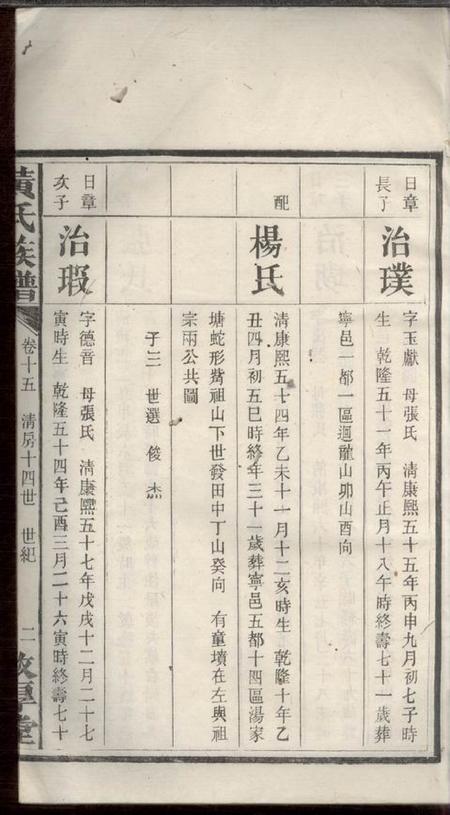 日章
長子
治璞
字玉獻　母張氏　清康熙五十五年丙申九月初七子時
生　乾隆五十一年丙午正月十八午時終壽七十一歲葬
寧邑一都一區迴龍山卯山酉向
配
楊氏
清康熙五十四年乙未十一月十二亥時生　乾隆十年乙
丑四月初五巳時終年三十一歲葬寧邑五都十四區湯家
塘蛇形觜祖山下世發田中丁山癸向　有童墳在左與祖
宗兩公共圖
子三　世選　俊　杰
日章
次子
治瑕
字德音　母張氏　清康熙五十七年戊戌十二月二十七
寅時生　乾隆五十四年己酉三月二十六寅時終壽七十
黃氏族譜
卷十五　清房十四世　世紀
二
敦厚堂